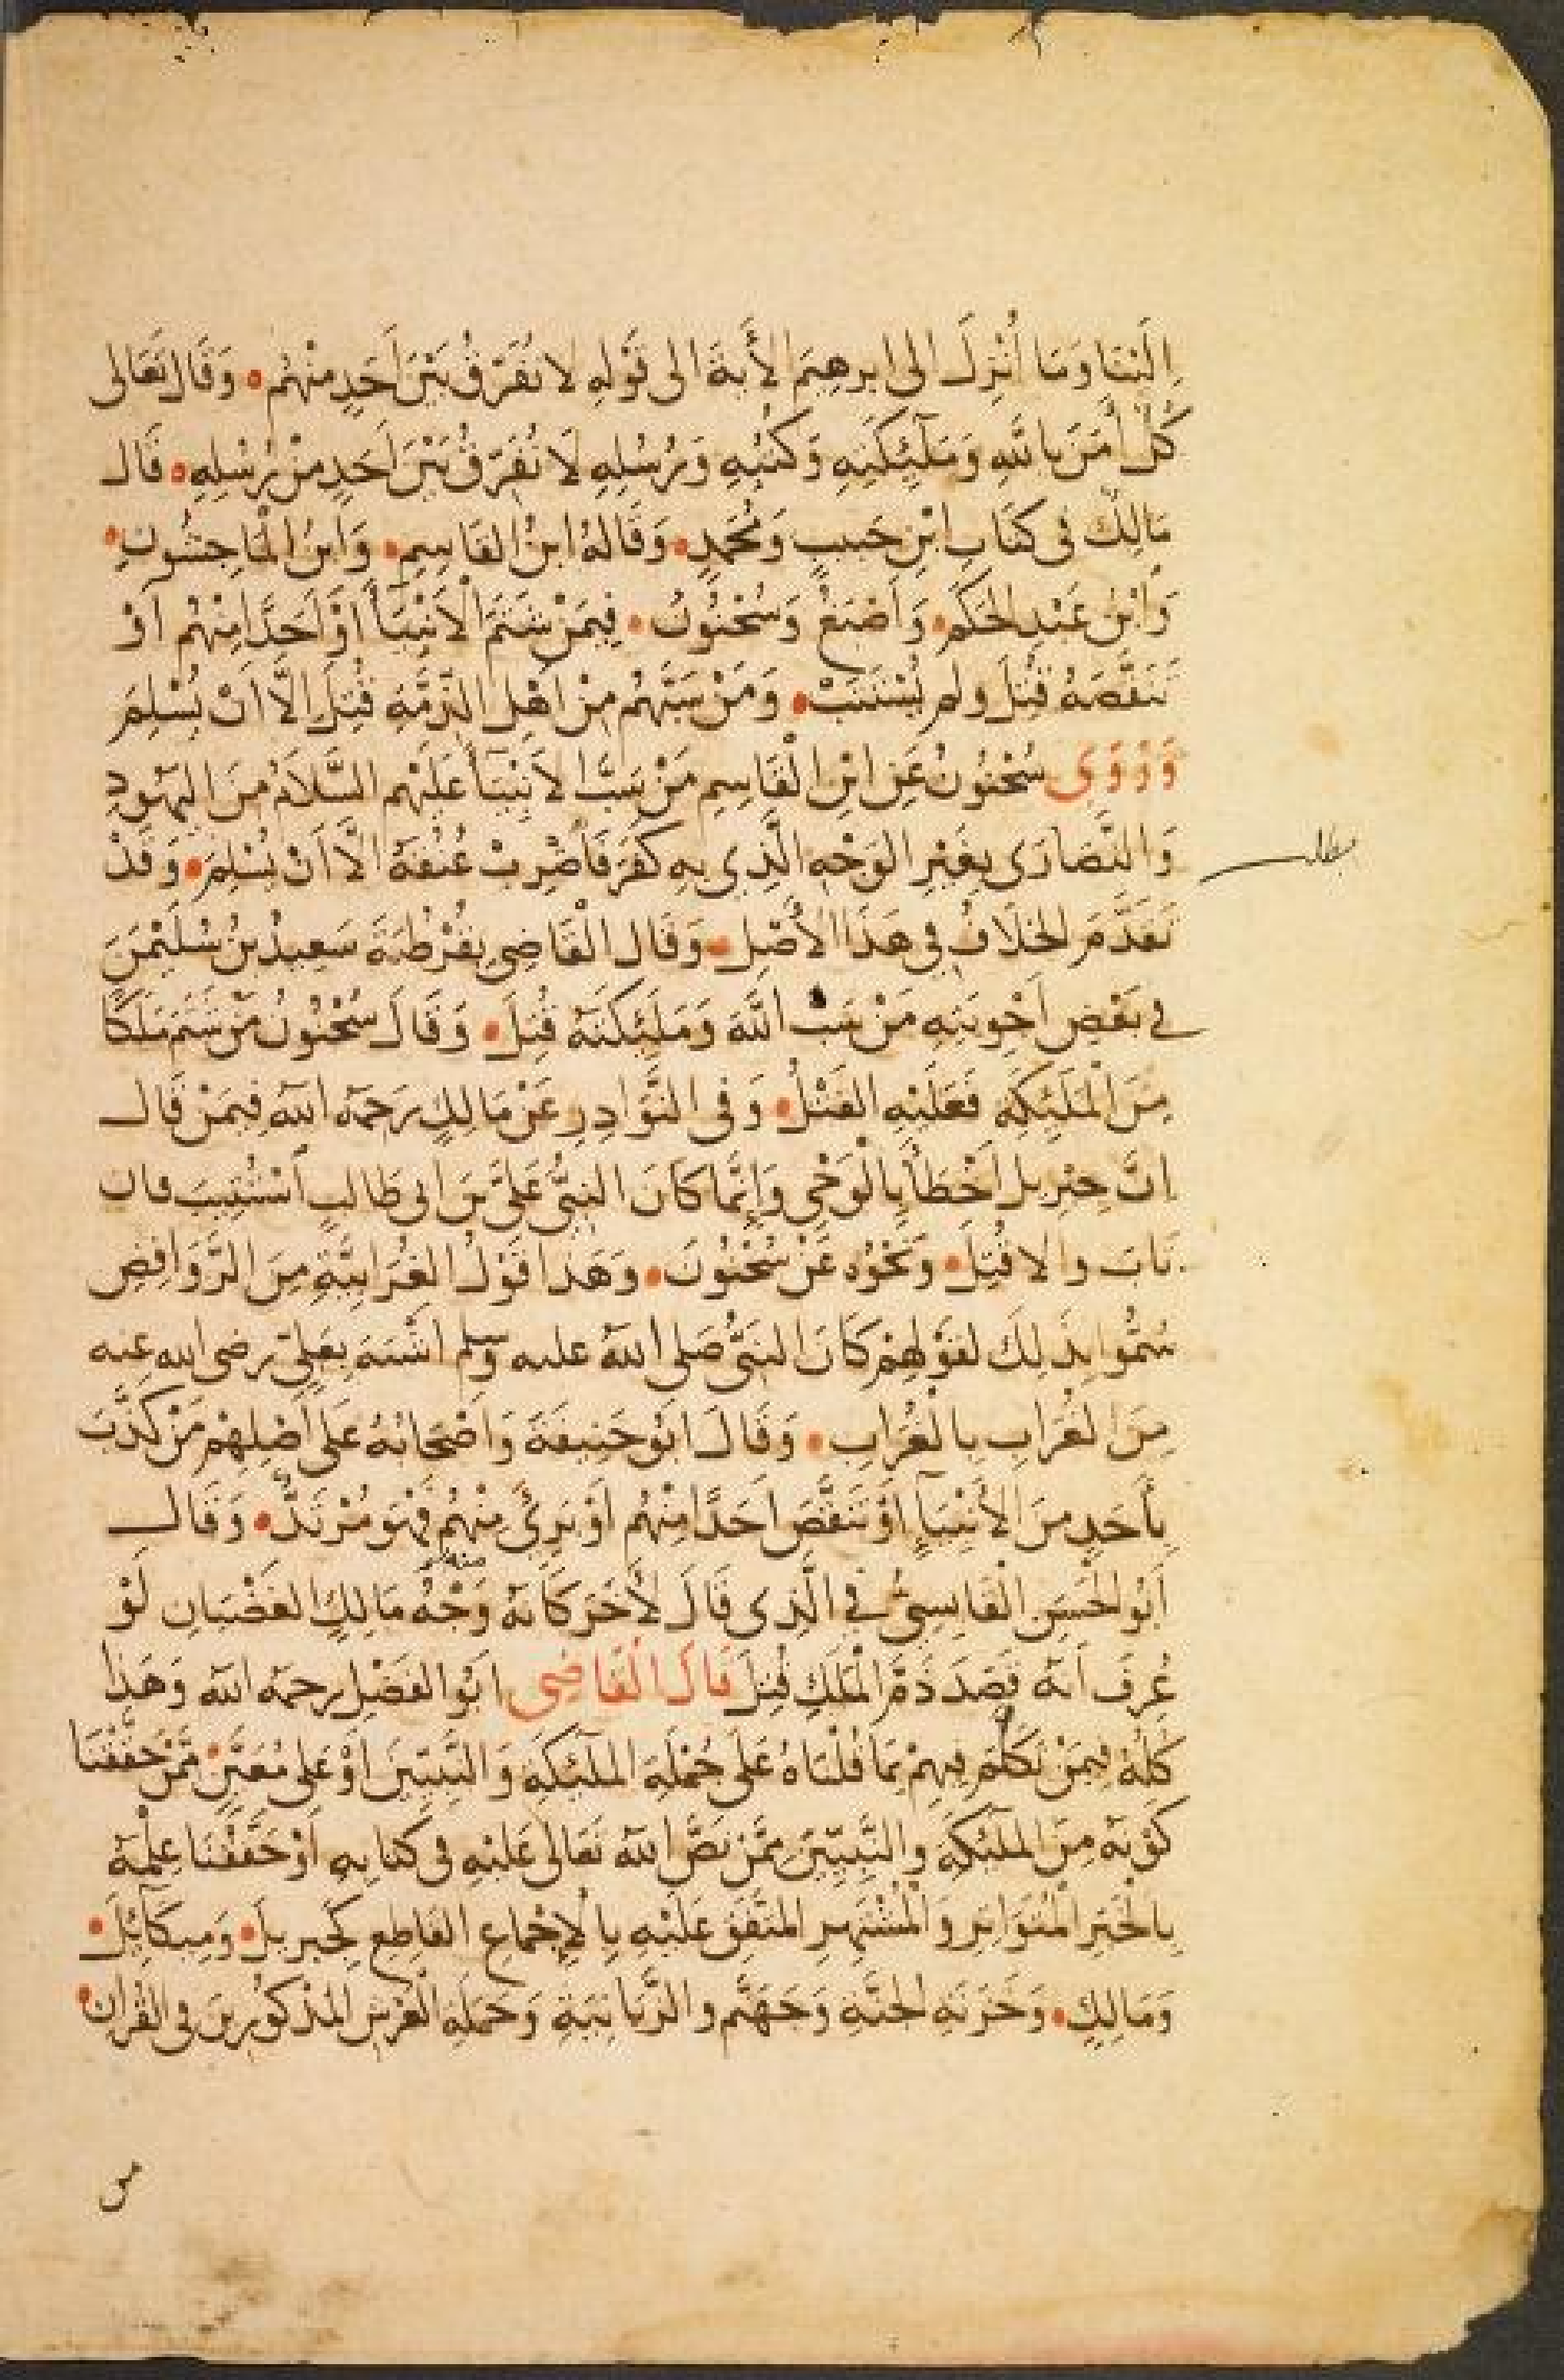 اِلَيْنَا وَمَا أُنْزِلَ الى ابرهِيمَ الأيَةَ الى قَوْلِهِ لا نُفَرّقُ بَيْنَ اَحَدٍ مِنْهُم • وَقَالَ تَعَالى
كُلٌّ اٰمَنَ بالله وَمَلٰٓئِكَتِهِ وَكُتُبِهِ وَرُسُلِهِ لَا نُفَرّقُ بَيْنَ اَحَدٍ مِنْ رُسُلِهِ • قَال
مَالِكٌ فى كتَابِ ابْنِ حَبيبٍ وَمُحَمدٍ • وَقَالهُ ابنُ القَاسِمِ • وَابنُ الْمَاجِشُونِ •
وَابْنُ عَبْدِ الحَكَمِ • وَاَصْبَغُ وَسُحْنُونُ • فِيمَنْ شَتَمَ الْاَنْبِيَآءَ أَوْ اَحَدًا مِنْهُم اَوْ
تَنَقَّصَهُ قُتِلَ ولم يُسْتَتَبْ • وَمَنْ سَبَّهُم مِنْ اَهْلِ الذِّمَّةِ قُتِلَ اِلَّا اَنْ يُسْلِمَ
وَرَوَى سُحْنُونُ عَنِ ابْنِ الْقَاسِمِ مَنْ سَبَّ الاَنْبِيَآءَ عَلَيْهم السَّلَامُ مِنَ اليَهُودِ
وَالنَّصَارَى بِغَيْرِ الوَجْهِ الَّذِى بِهِ كَفَرَ فَاضْرِبْ عُنُقَهُ الَّا اَنْ يُسْلِمَ • وَقَدْ
مطلب
تَقَدَّمَ الخلَافُ فِى هَذَا الْأَصْلِ • وَقَال الْقَاضِى بِقُرْطُبَةَ سَعِيدُ بنُ سُلَيْمٰنَ
فِى بَعْضِ اَجْوِبَتِهِ مَنْ سَبَّ اللهَ وَمَلٰئِكَتَهُ قُتِلَ • وَقَالَ سُحْنُونُ مَنْ شَتَمَ مَلَكًا
مِنَ الْمَلٰئِكَةِ فَعَلَيْهِ القَتْلُ • وَفى النَّوَادِرِ عَنْ مَالِكٍ رَحِمَهُ اللهُ فِيمَنْ قَال
اِنَّ جِبْرِيل اَخْطَأَ بِالْوَحْىِ وَاِنَّمَا كَانَ النبىُّ عَلىَّ بنَ ابى طَالبٍ اُسْتُتِيبَ فان
تاب والا قُتِلَ • وَنَحْوُه عَنْ سُحْنُونَ • وَهَذا قَوْلُ الغُرَابِيَّةِ مِنَ الرَّوَافِضِ
سُمُّوا بذَلِكَ لقَوْلِهِمْ كَانَ النبىُّ صَلى اللهُ عليه وسلم اَشْبَهَ بِعَلِىّ رضى الله عنه
مِنَ الغُرَابِ بِالْغُرَابِ • وَقَالَ ابُو حَنِيفَةَ وَاَصْحَابُهُ عَلَى اَصْلِهِمْ مَنْ كَذَّبَ
بِأَحَدٍ مِنَ الاَنْبِيَآءِ اَوْ تَنَقَّصَ اَحَدًا مِنْهُم اَوْ بَرِئَ مِنْهُم فَهُوَ مُرْتَدٌّ • وَقَال
اَبُو الحَسَنِ الْقَابِسِىُّ فى الَّذِى قَالَ لاٰخَرَ كَاَنهُ وَجْهُ مَالِكٍ الغَضْبَانِ لَوْ
عُرِفَ اَنهُ قَصَدَ ذَمَّ الْمَلَكِ قُتِلَ قَالَ القَاضِى ابَو الفَضْلِ رحمهُ اللهُ وَهَذا
كُلُّهُ فِيمَنْ تَكَلَّمَ فِيهِمْ بمَا قُلْنَاهُ عَلَى جُمْلَةِ المَلٰئِكَةِ وَالنَّبِيّينَ اَوْ عَلى مُعَيَّنٍ • مِمَّنْ حَقَّقْنَا
كَوْنَهُ مِنَ المَلٰئِكَةِ وَالنَّبِيّينَ مِمَّنْ نَصَّ اللهُ تَعَالى عَلَيْهِ فى كتَابِهِ اَوْ حَقَّقْنَا عِلْمَهُ
بِالْخَبَرِ الْمُتَوَاتِرِ وَالْمُشْتَهِرِ المُتَّفَقِ عَلَيْهِ بِالْاِجْمَاعِ القَاطِعِ كَجِبرِيلَ • وَمِيكَائِلَ •
وَمَالِكٍ • وَخَزَنَةِ الجَنَّةِ وَجَهَنَّم والزَّبَانِيَةِ وَحَمَلَةِ الْعَرْشِ الْمَذْكُورِينَ فى القُرآنِ •
من